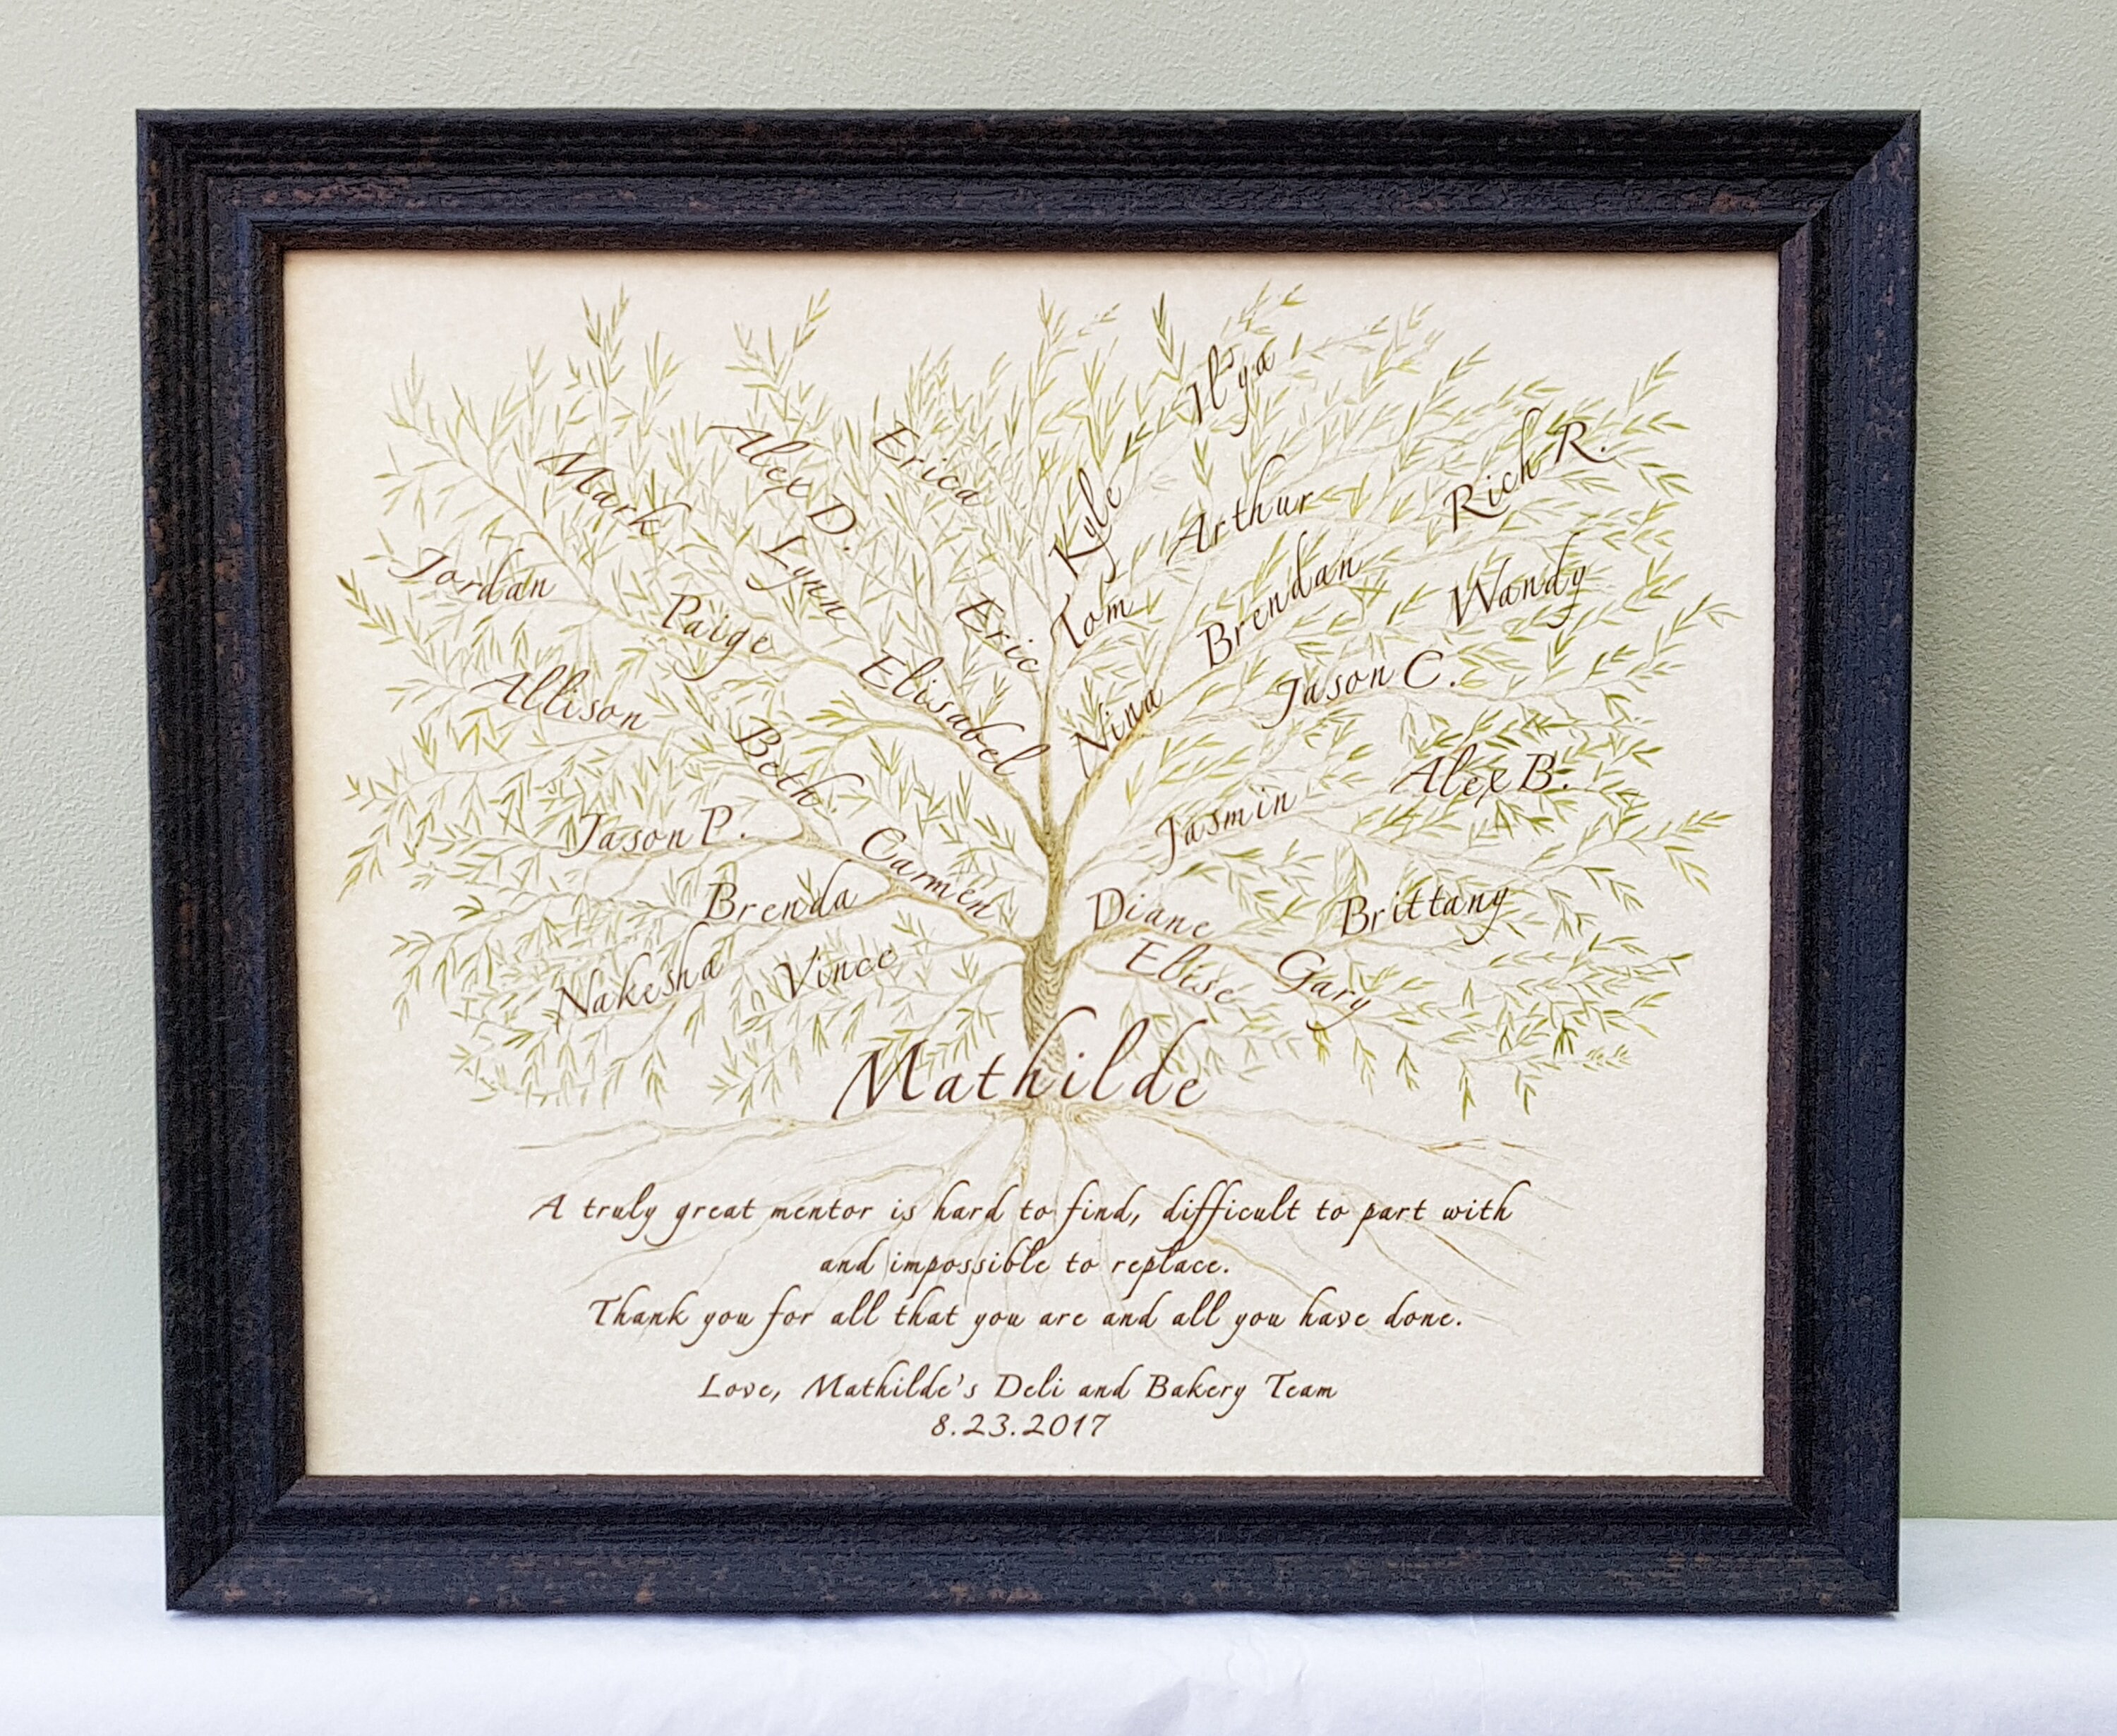 Il'ya
Erica
Alex D.
Mark
Rich R.
Kyle
Arthur
Jordan
Lynn
Paige
Eric
Tom
Brendan
Wandy
Allison
Elisabel
Nina
Jason C.
Beth.
Jason P.
Carmen
Jasmin
Alex B.
Brenda
Diane
Brittany
Nakesha
Vince
Elise
Gary
Mathilde
A truly great mentor is hard to find, difficult to part with
and impossible to replace.
Thank you for all that you are and all you have done.
Love, Mathilde's Deli and Bakery Team
8.23.2017